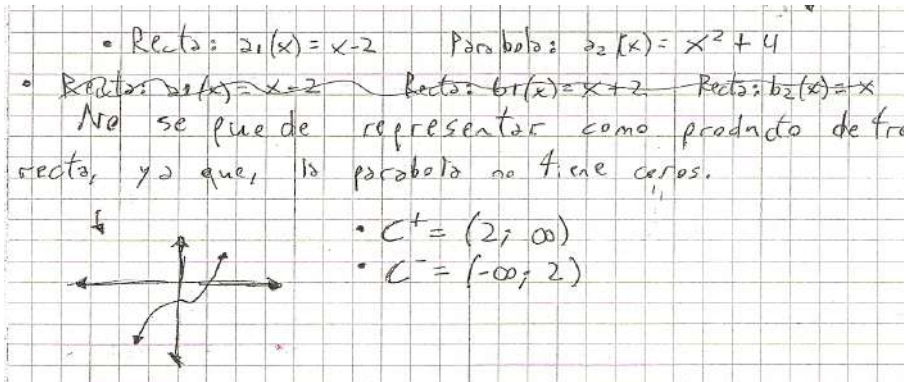 • Recta: a₁(x) = x-2 Parabola: a₂(x) = x² + 4
• Recta: a₁(x) = x-2 Recta: b₁(x) = x+2 Recta: b₂(x) = -x
No se puede representar como producto de tre
recta, ya que, la parabola no tiene ceros.
• C⁺ = (2; ∞)
• C⁻ = (-∞; 2)